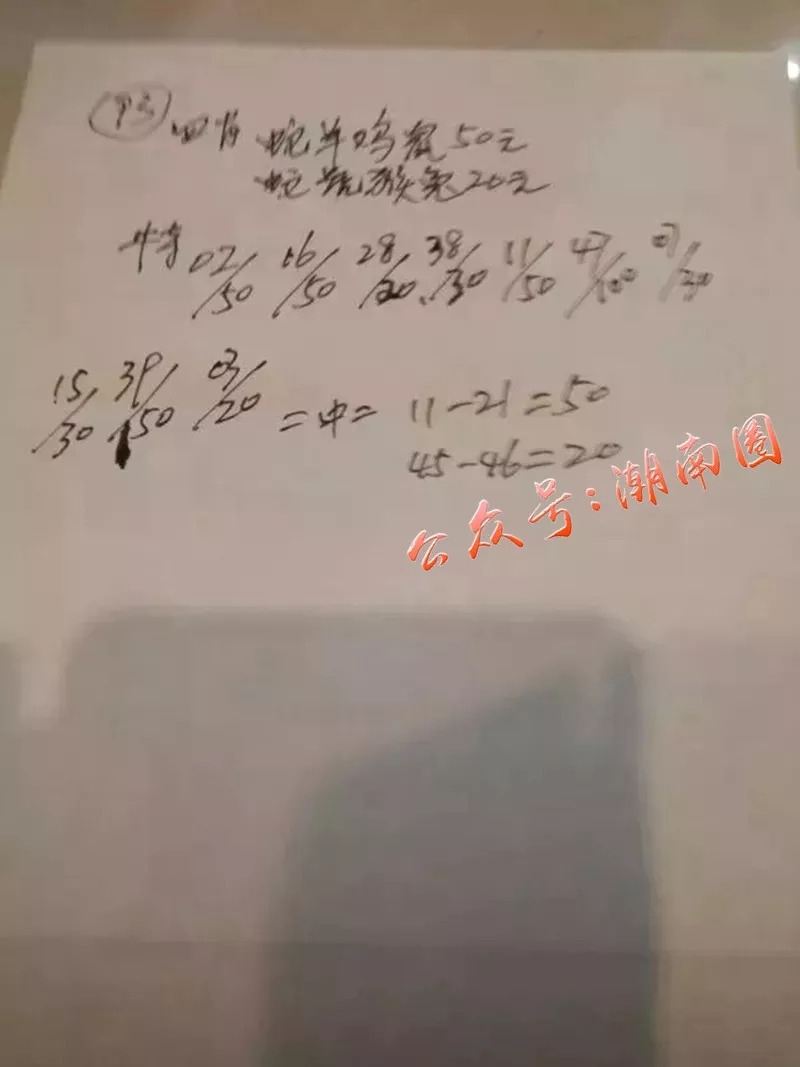 93 四肖 蛇羊鸡鼠50元
蛇龙猴兔20元
特 02/50 16/50 28/20 38/30 11/50 47/100 07/30
15/30 39/50 03/20 =中= 11-21=50
45-46=20
公众号:潮南圈